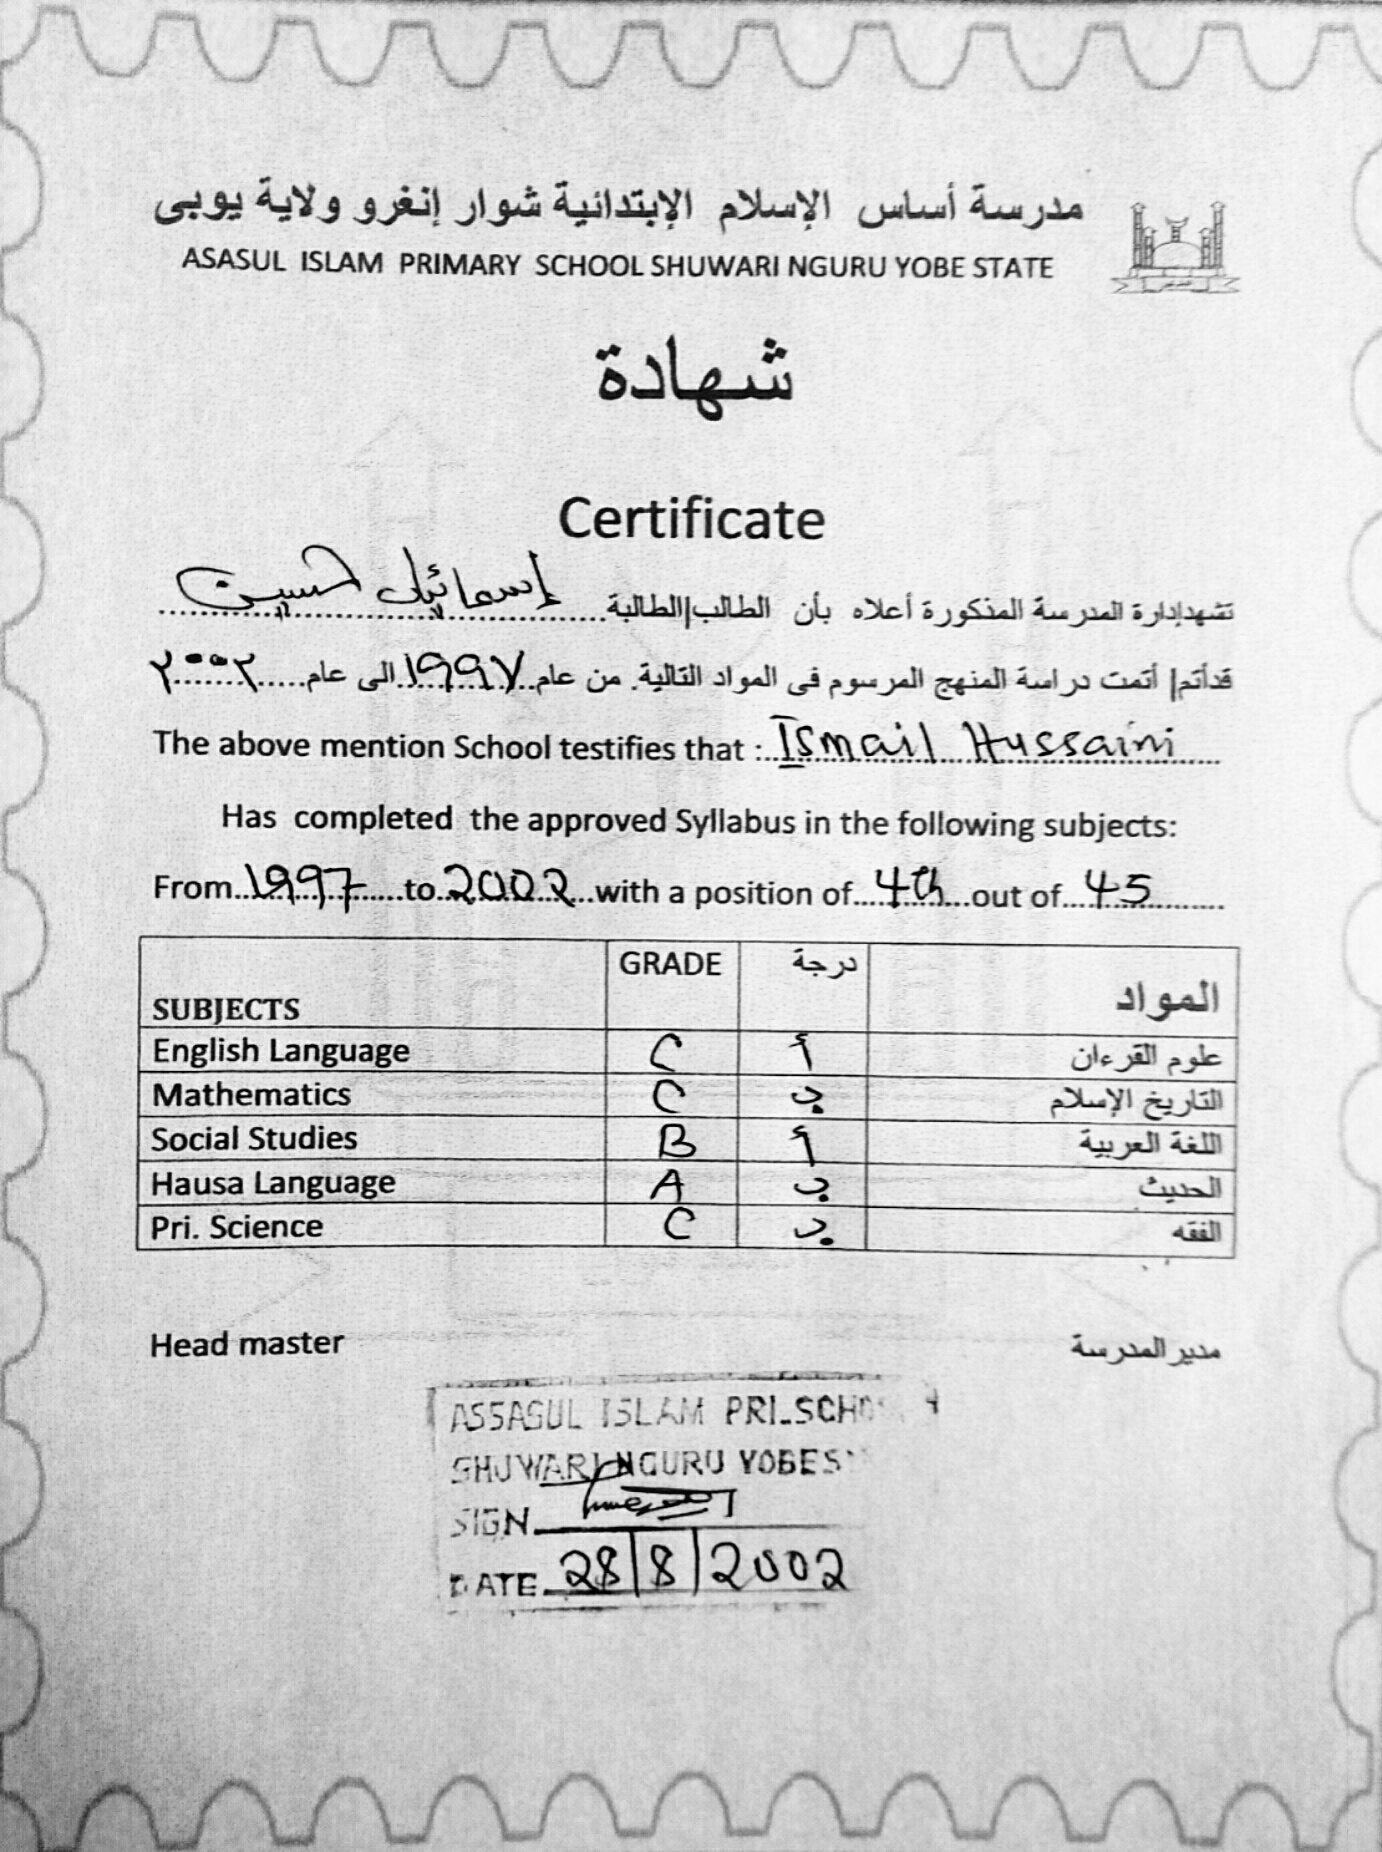 مدرسة أساس الإسلام الإبتدائية شوار إنغرو ولاية يوبى
ASASUL ISLAM PRIMARY SCHOOL SHUWARI NGURU YOBE STATE
شهادة
Certificate
تشهد إدارة المدرسة المذكورة أعلاه بأن الطالب|الطالبة إسمائيل حسين
قدأتم| أتمت دراسة المنهج المرسوم فى المواد التالية. من عام ١٩٩٧ الى عام ٢٠٠٢
The above mention School testifies that : Ismail Hussaini
Has completed the approved Syllabus in the following subjects:
From 1997 to 2002 with a position of 4th out of 45
SUBJECTS GRADE درجة المواد
English Language C أ علوم القرءان
Mathematics C ب التاريخ الإسلام
Social Studies B أ اللغة العربية
Hausa Language A ب الحديث
Pri. Science C ب الفقه
Head master مدير المدرسة
ASSASUL ISLAM PRI-SCHO
SHUWARI NGURU YOBE S
SIGN
DATE 28/8/2002